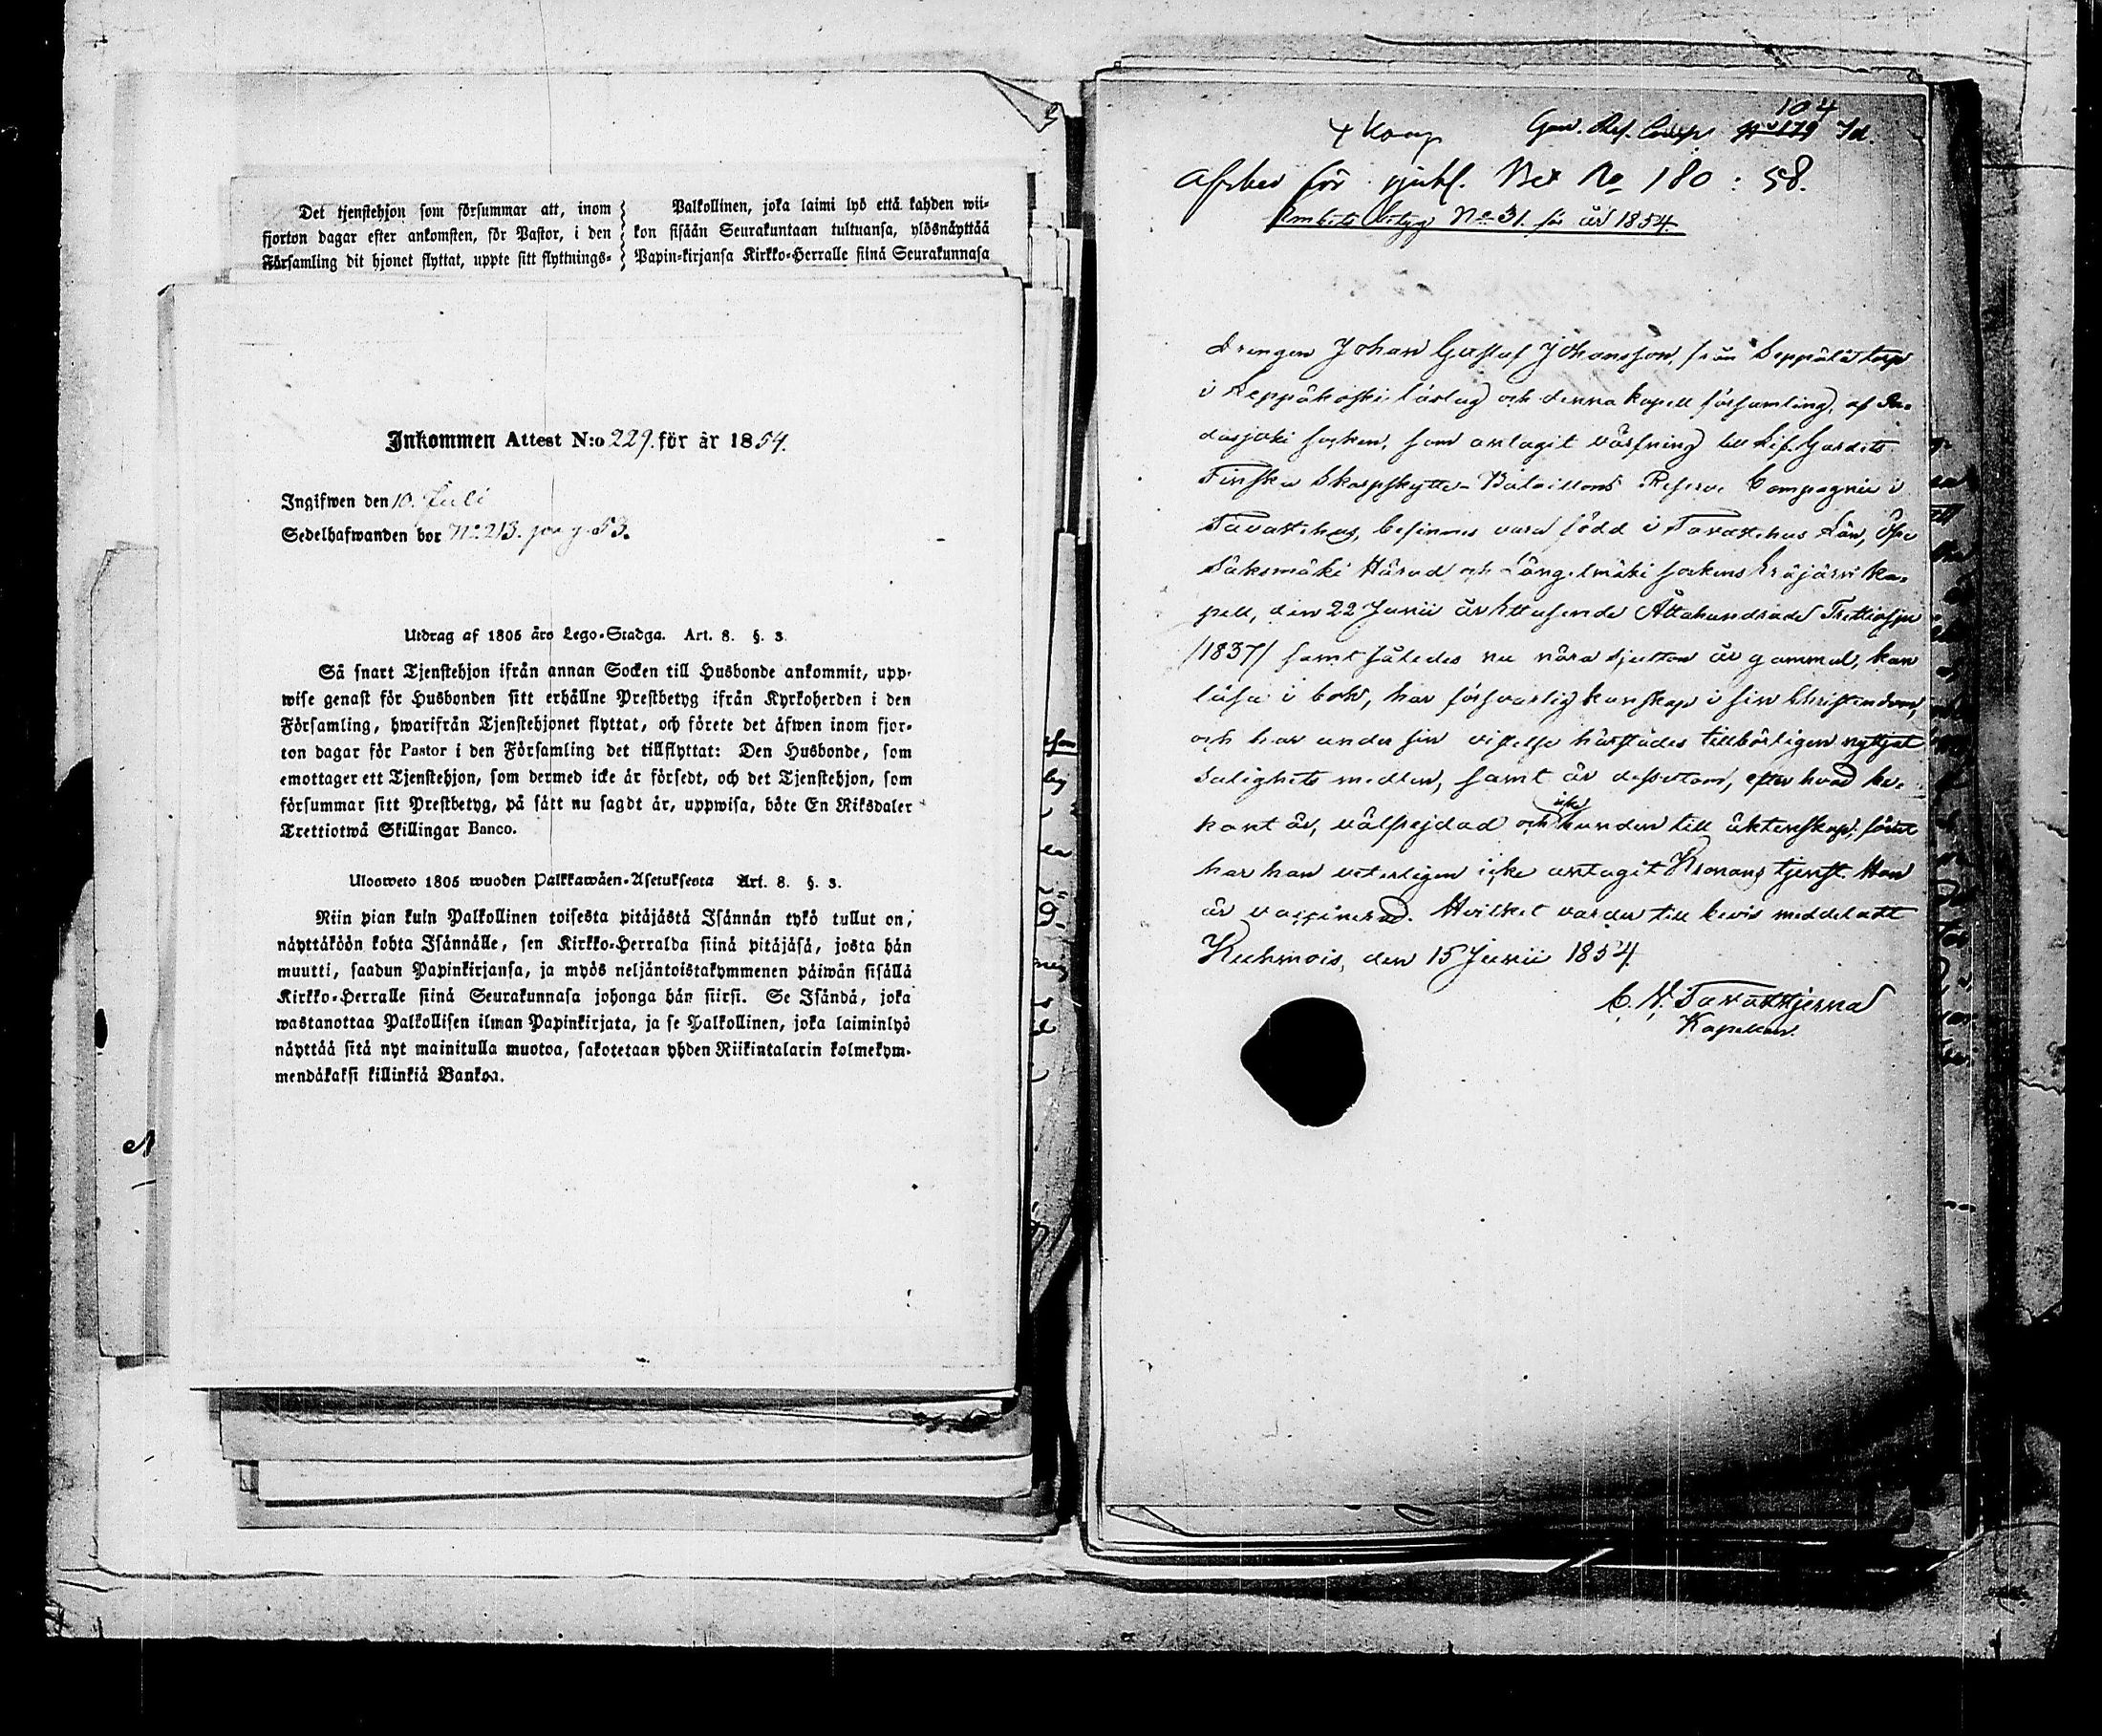 Det tjenstehjon som försummar att, inom
fjorton dagar efter ankomsten, för Pastor, i den
Församling dit hjonet flyttat, uppte sitt flyttnings-
Palkollinen, joka laimi lyö että kahden wii-
kon sisään Seurakuntaan tultuansa, ylösnäyttää
Papin-kirjansa Kirkko-Herralle siinä Seurakunnasa
Inkommen Attest N:o 229. för år 1854.
Ingifwen den 10. Juli
Sedelhafwanden bor No 213. g. 53.
Utdrag af 1805 års Lego-Stadga. Art. 8. §. 3.
Så snart Tjenstehjon ifrån annan Socken till Husbonde ankommit, upp-
wise genast för Husbonden sitt erhållne Prestbetyg ifrån Kyrkoherden i den
Församling, hwarifrån Tjenstehjonet flyttat, och förete det äfwen inom fjor-
ton dagar för Pastor i den Församling det tillflyttat: Den Husbonde, som
emottager ett Tjenstehjon, som dermed icke är försedt, och det Tjenstehjon, som
försummar sitt Prestbetyg, på sätt nu sagdt är, uppwisa, böte En Riksdaler
Trettiotwå Skillingar Banco.
Ulosweto 1805 wuoden Palkkawäen-Asetuksesta Art. 8. §. 3.
Niin pian kuin Palkollinen toisesta pitäjästä Isännän tykö tullut on,
näyttäköön kohta Isännälle, sen Kirkko-Herralda siinä pitäjäsä, josta hän
muutti, saadun Papinkirjansa, ja myös neljäntoistakymmenen päiwän sisällä
Kirkko-Herralle siinä Seurakunnasa johonga hän siirsi. Se Isändä, joka
wastanottaa Palkollisen ilman Papinkirjata, ja se Palkollinen, joka laiminlyö
näyttää sitä nyt mainitulla muotoa, sakotetaan yhden Riikintalarin kolmekym-
mendäkaksi killinkiä Bankoa.
104
Komp No 179
för Bet No 180 : 58.
Embets betyg No 31. för år 1854.
Drengen Johan Gustaf Johansson, från Seppälä torp
i Leppäkoski låslag och denna kapell församling, af Pa-
dasjoki socken, som antagit värfning till Lif-Gardets
Finska Skarpskytte-Bataillons Reserve Compagnie i
Tavastehus, befinnes vara född i Tavastehus Län, Öfre
Sääksmäki Härad och Längelmäki sockens Eräjärvi Ka-
pell, den 22 Junii år Ettusende Åttahundrade Trettiosju
/1837/ samt således nu nära sjutton år gammal, kan
läsa i bok, har försvarlig kunskap i sin Christendom,
och har under sin vistelse härstädes tillbörligen nyttjat
salighets medlen, samt är dessutom, efter hvad be-
kant är, välfrejdad och icke bunden till äktenskap,
har han veterligen icke antagit Kronans tjenst. Han
är vaccinerad. Hvilket varder till bevis meddeladt
Kuhmois, den 15 Junii 1854.
C. N. Tavaststjerna
Kapellan.